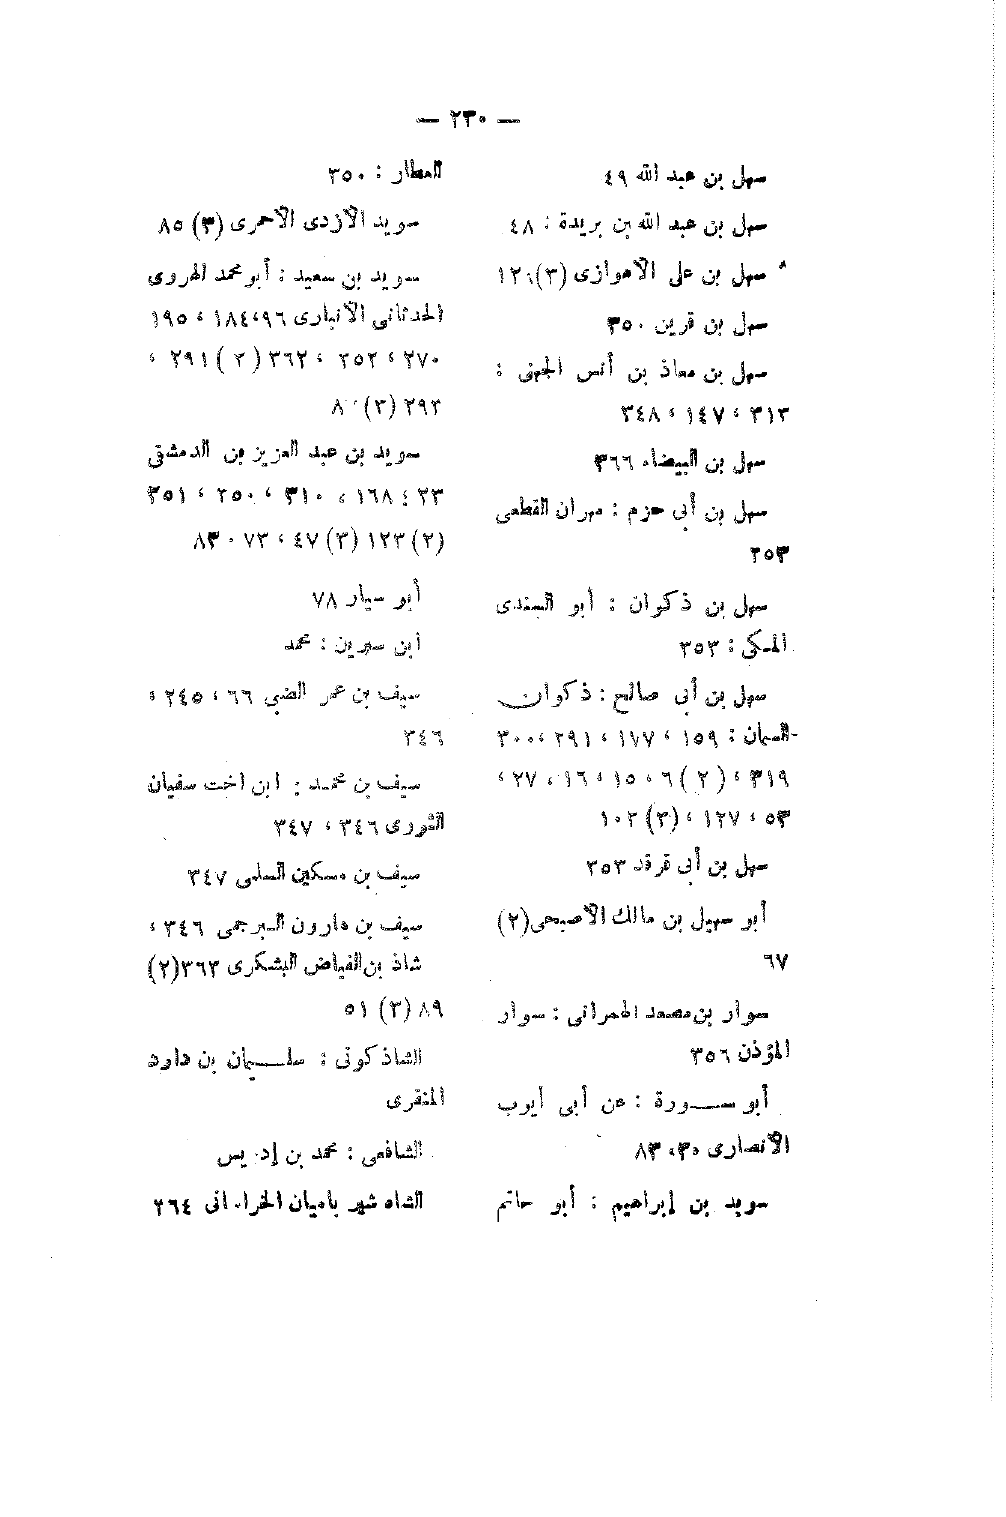 — ٢٣٠ —
سهل بن عبد الله ٤٩
سهل بن عبد الله بن بريدة : ٤٨
سهل بن على الأهوازى (٣)
سهل بن قرين ٣٥٠
سهل بن معاذ بن أنس الجهنى :
٣١٣ ، ١٤٧ ، ٣٤٨
سهل بن البيضاء ٣٦٦
سهل بن أبى حزم : مهران القطعى
٣٥٣
سهل بن ذكوان : أبو السندى
المكى : ٣٥٣
سهل بن أبى صالح : ذكوان
السمان : ١٥٩ ، ١٧٧ ، ٢٩١ ، ٣٠٠
٣١٩ ، (٢) ٦ ، ١٥ ، ١٦ ، ٢٧ ،
٥٣ ، ١٢٧ ، (٣) ١٠٢
سهل بن أبى قرقد ٣٥٣
أبو سهيل بن مالك الأصبحى (٢)
٦٧
سوار بن مصعد الهمرانى : سوار
المؤذن ٣٥٦
أبو ســـورة : عن أبى أيوب
الأنصارى ٣٠ ، ٨٣
سويد بن إبراهيم : أبو حاتم
العطار : ٣٥٠
سويد الأزدى الأحمرى (٣) ٨٥
سويد بن سعيد : أبو محمد الهروى
الحدثانى الأنبارى ٩٦ ، ١٨٤ ، ١٩٥
٢٧٠ ، ٢٥٢ ، ٣٦٢ (٢) ٢٩١ ،
٢٩٣ (٣)
سويد بن عبد العزيز بن الدمشقى
٢٣ ، ١٦٨ ، ٣١٠ ، ٢٥٠ ، ٣٥١
(٢) ١٢٣ (٣) ٤٧ ، ٧٣ ، ٨٣
أبو سيار ٧٨
ابن سيرين : محمد
سيف بن عمر الضبى ٦٦ ، ٢٤٥ ،
٣٤٦
سيف بن محمد : ابن اخت سفيان
الثورى ٣٤٦ ، ٣٤٧
سيف بن مسكين السلمى ٣٤٧
سيف بن هارون البرجمى ٣٤٦ ،
شاذ بن الفياض اليشكرى ٣٦٣ (٢)
٨٩ (٣) ٥١
الشاذكونى : سلـــيمان بن داود
المنقرى
الشافعى : محمد بن إد يس
الشاه شير باميان ٢٦٤